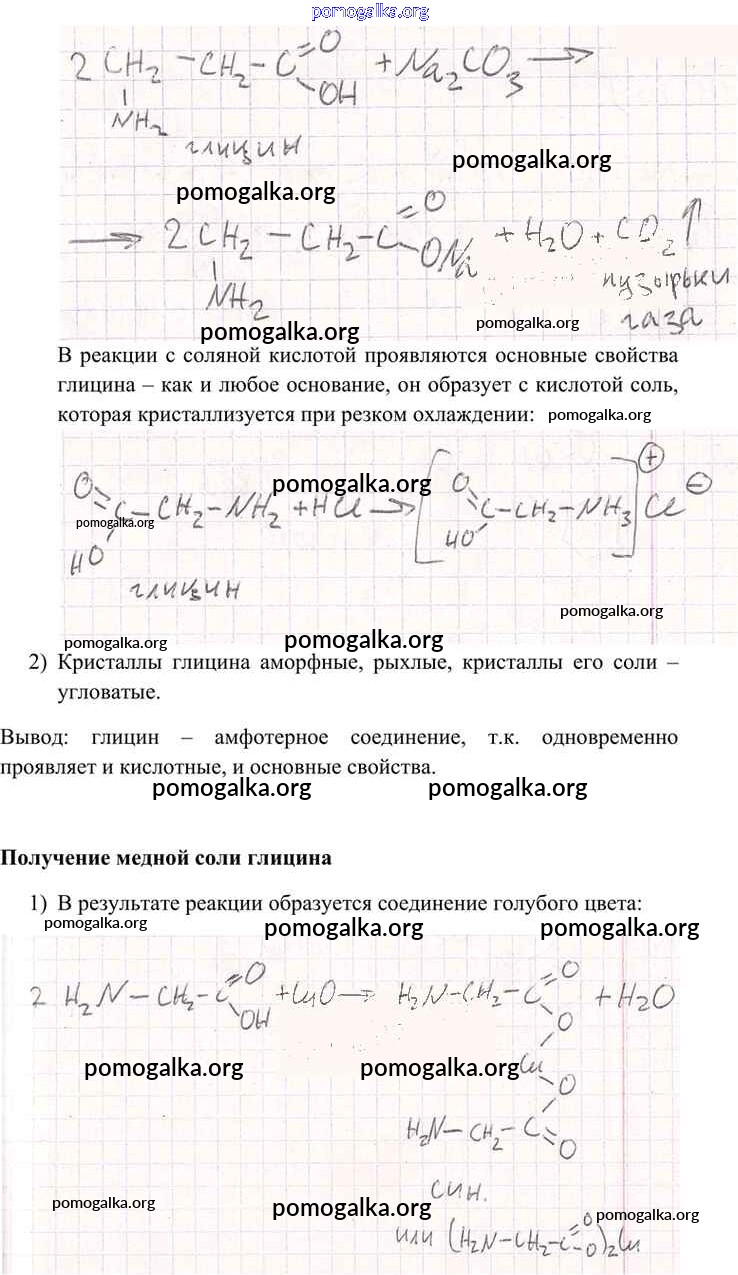 pomogalka.org
2 CH2 – CH2 – C =O –OH + Na2CO3 →
NH2
глицин
pomogalka.org
pomogalka.org
→ 2 CH2 – CH2 – C =O –ONa + H2O + CO2↑
NH2
пузырьки
газа
pomogalka.org
pomogalka.org
В реакции с соляной кислотой проявляются основные свойства
глицина – как и любое основание, он образует с кислотой соль,
которая кристаллизуется при резком охлаждении: pomogalka.org
pomogalka.org
O= C – CH2 – NH2 + HCl → [O= C – CH2 – NH3]⊕ Cl⊖
pomogalka.org
HO HO
глицин
pomogalka.org
pomogalka.org
pomogalka.org
2) Кристаллы глицина аморфные, рыхлые, кристаллы его соли –
угловатые.
Вывод: глицин – амфотерное соединение, т.к. одновременно
проявляет и кислотные, и основные свойства.
pomogalka.org
pomogalka.org
Получение медной соли глицина
1) В результате реакции образуется соединение голубого цвета:
pomogalka.org
pomogalka.org
pomogalka.org
2 H2N – CH2 – C =O –OH + CuO → H2N – CH2 – C =O + H2O
O
Cu
pomogalka.org
pomogalka.org
O
H2N – CH2 – C =O
син.
pomogalka.org
pomogalka.org
pomogalka.org
или (H2N – CH2 – C =O –O)2Cu